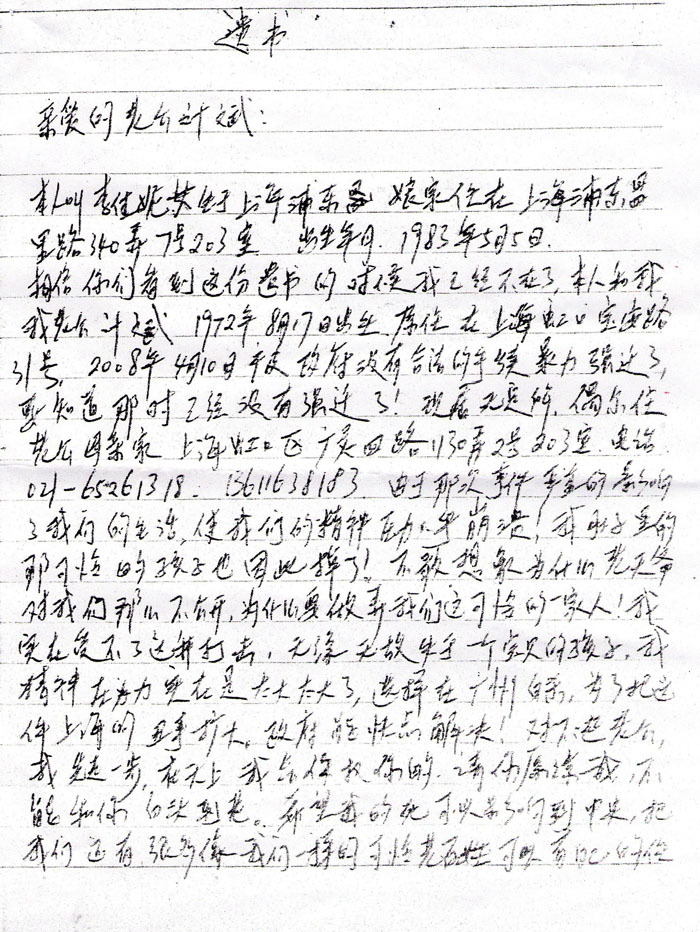 遗书
亲爱的老公计斌：
本人叫李佳妮 出生于上海浦东 娘家住在上海浦东
路340弄7号203室. 出生年月. 1983年5月5日.
相信你们看到这份遗书的时候我已经不在了，本人和我
我老公计斌 1972年8月17日出生 原住在上海虹口宝安路
31号, 2008年4月10日 政府没有合法的手续暴力强迁了,
要知道那时已经没有强迁了! 现居无定所, 偶尔住
老公母亲家 上海虹口区广灵四路1130弄2号203室. 电话
021-65261318. 13611638183 由于那次事件严重的影响
了我们的生活, 使我们的精神压力 崩溃! 我肚子里的
那可怜的孩子也因此掉了! 不敢想象为什么老天爷
对我们那么不公平, 为什么要做弄我们这可怜的一家人! 我
实在受不了这种打击, 无缘无故失去一个宝贝的孩子, 我
精神 压力实在是太大太大了, 选择在广州自杀, 为了把这
件上海的 事扩大, 政府能快点解决! 对不起老公,
我先走一步, 在天上我会保权你的. 请你原谅我, 不
能和你白头到老。希望我的死可以影响到中央, 把
我们还有很多像我们一样的可怜老百姓可以有自己的住